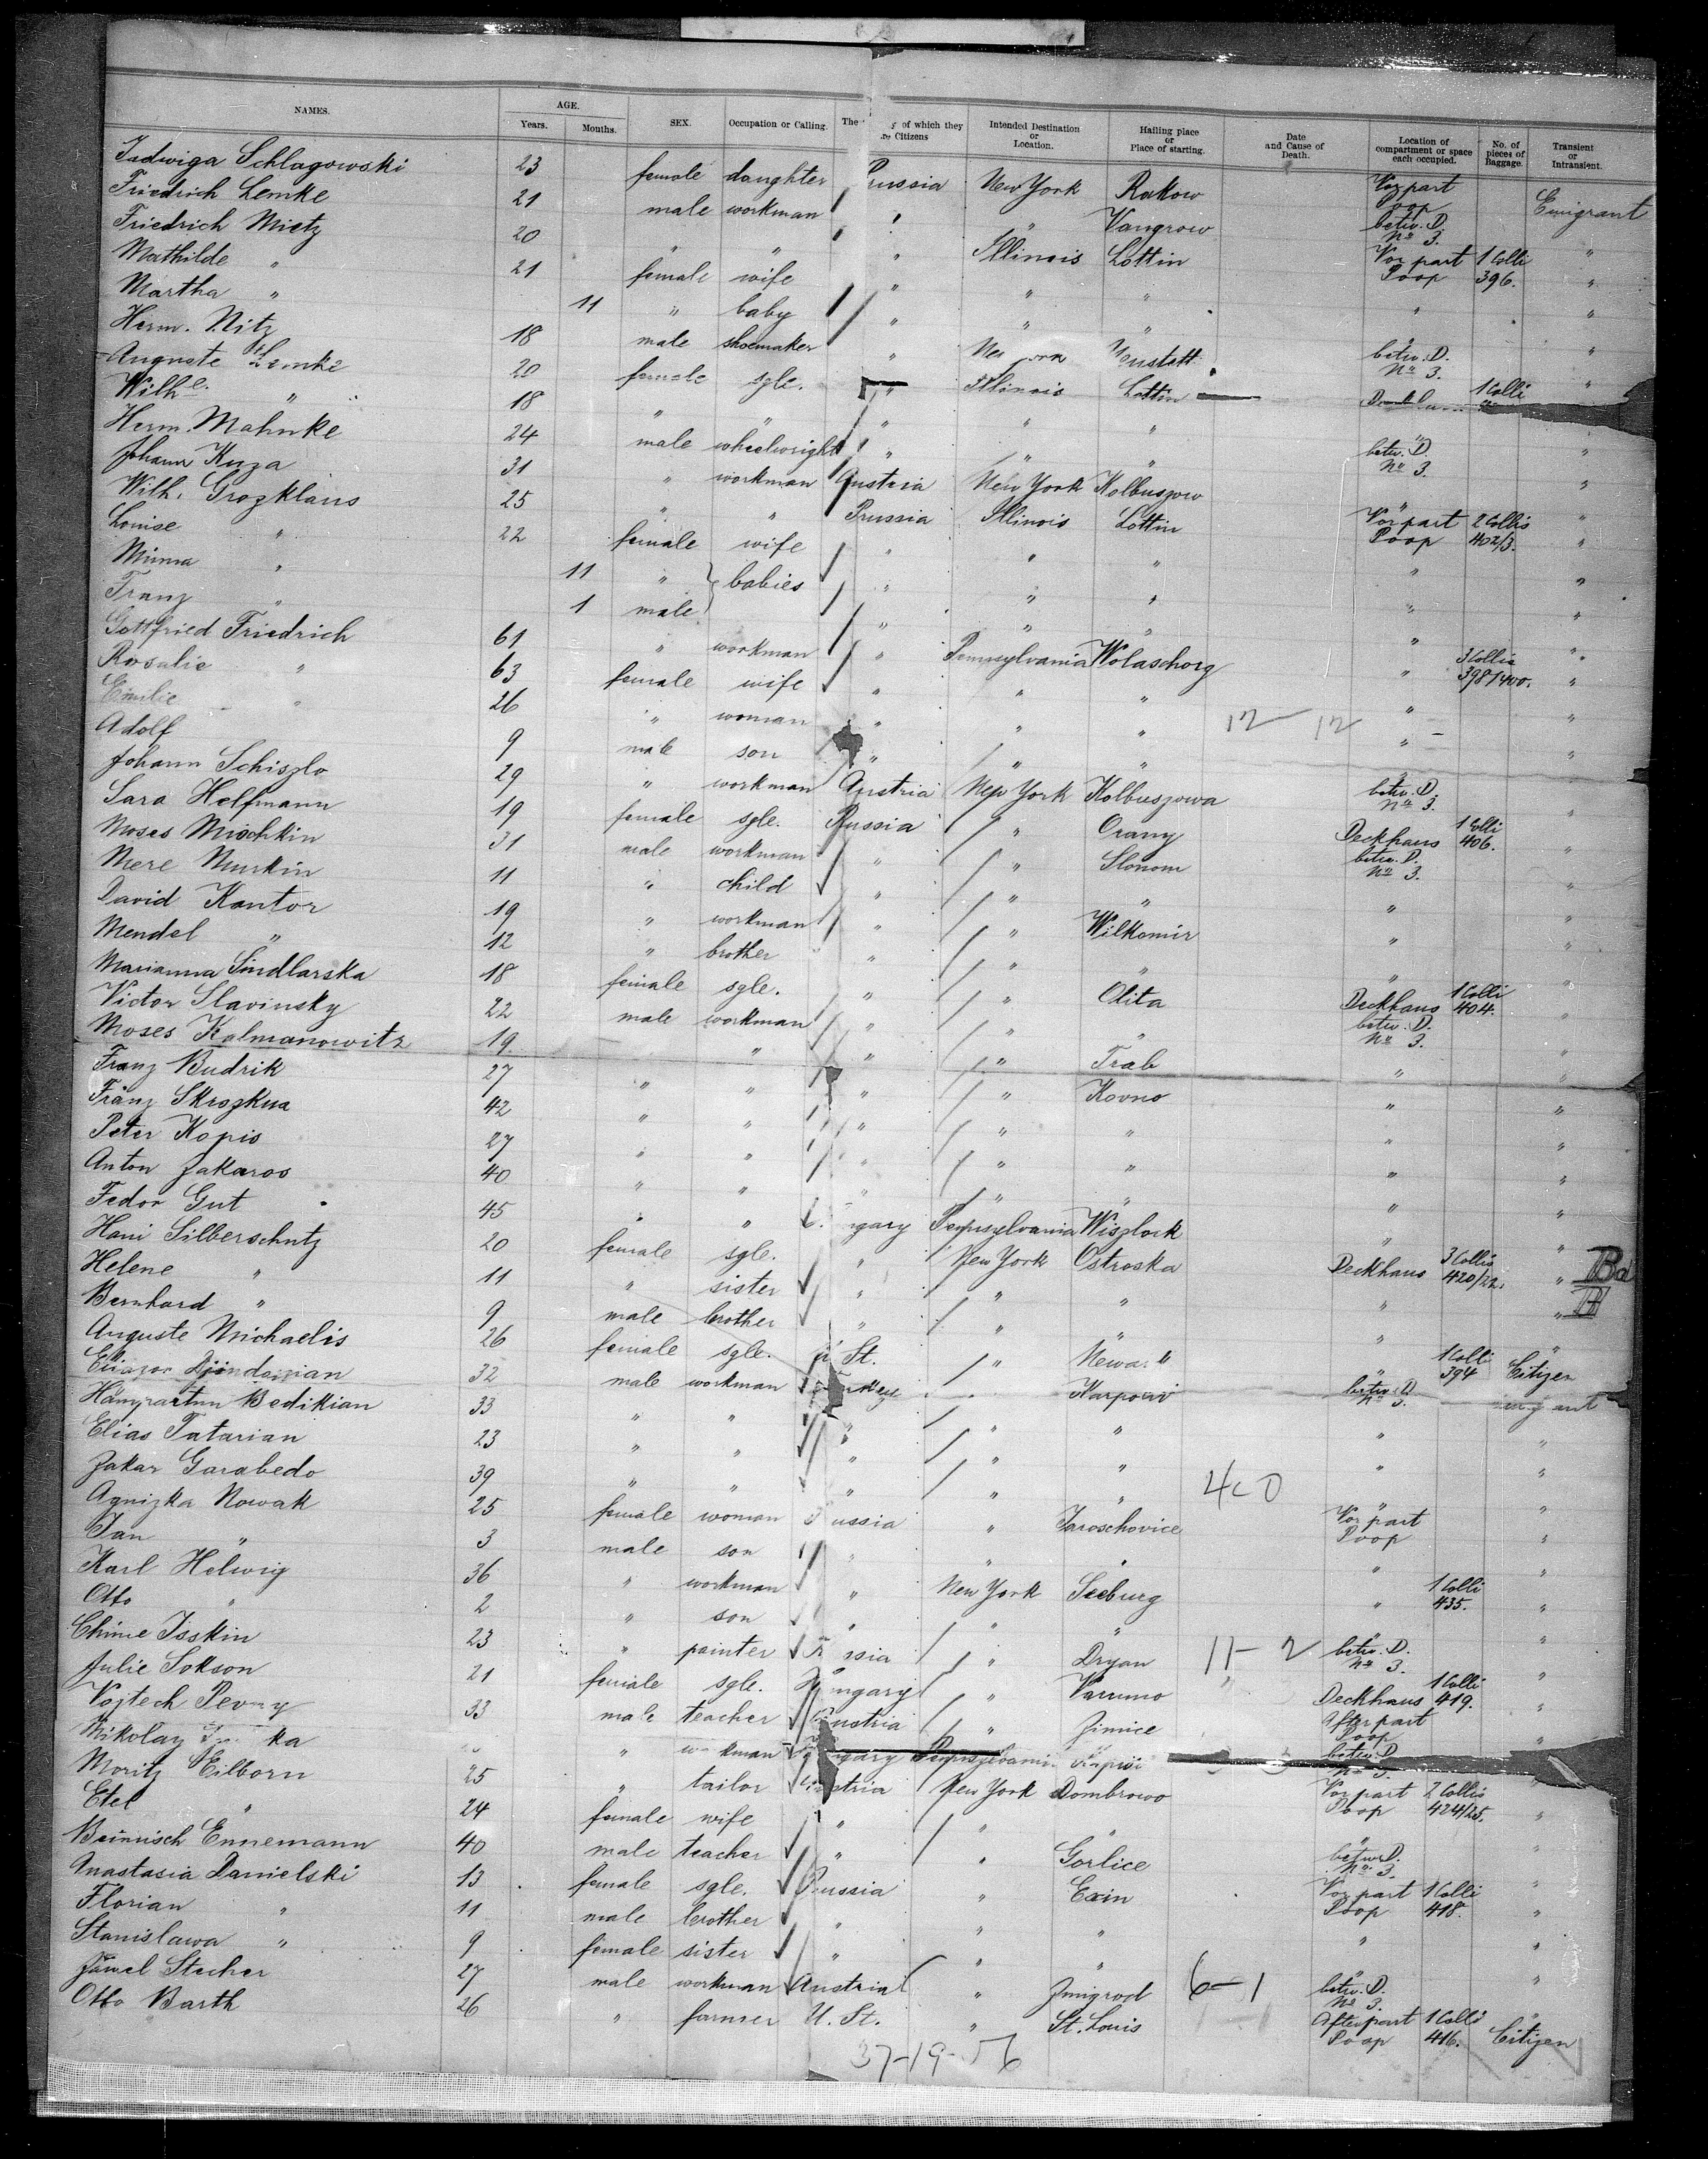 NAMES. AGE. Years. Months. SEX. Occupation or Calling. The of which they Citizens Intended Destination or Location. Hailing place or Place of starting. Date and Cause of Death. Location of compartment or space each occupied. No. of pieces of Baggage. Transient or Intransient.
Jadwiga Schlagowski 23 female daughter Prussia New York Rakow Vor part Poop Emigrant
Friedrich Lemke 21 male workman " " Vangrow betw. D. No 3. "
Friedrich Mietz 20 " " " Illinois Lottin Vor part Poop 1 Colli 396. "
Mathilde " 21 female wife " " " " "
Martha " 11 " baby " " " "
Herm. Nitz 18 male shoemaker " Neustett betw. D. No 3. "
Auguste Lemke 20 female sgle. " Illinois Lottin 1 Colli
Wilhe. " 18 " " " " "
Herm. Mahnke 24 male wheelwright " " " betw. D. No 3. "
Johann Kuza 31 " workman Austria New York Kolbuszow " "
Wilh. Grozklaus 25 " " Prussia Illinois Lottin Vor part Poop 2 Collis 402/3. "
Louise " 22 female wife " " " " "
Minna " 11 " babies " " " " "
Franz " 1 male " " " " "
Gottfried Friedrich 61 " workman " Pennsylvania Wolaschorg " 3 Collis 398/400. "
Rosalie " 63 female wife " " " " "
Emilie " 26 " woman " " " 12 12 " "
Adolf 9 male son " " " "
Johann Schiszlo 29 " workman Austria New York Kolbuszowa betw. D. No 3. "
Sara Helfmann 19 female sgle. Russia " Orany Deckhaus 1 Colli 406. "
Moses Mischkin 31 male workman " " Slonom betw. D. No 3. "
Mere Murkin 11 " child " " " " "
David Kantor 19 " workman " " Wilkomir " "
Mendel " 12 " brother " " " " "
Marianna Sindlarska 18 female sgle. " " Olita Deckhaus 1 Colli 404. "
Victor Slavinsky 22 male workman " " " betw. D. No 3. "
Moses Kalmanowitz 19. " " " Trab " "
Franz Budrik 27 " " " " Kovno " "
Franz Skrozkua 42 " " " " " " "
Peter Kopis 27 " " " " " " "
Anton Zakaros 40 " " " " " " "
Fedor Gut 45 " " gary Pennsylvania Wiszlock " "
Hani Silberschutz 20 female sgle. " New York Ostroska Deckhaus 3 Collis 420/22. "
Helene " 11 " sister " " " " "
Bernhard " 9 male brother " " " "
Auguste Michaelis 26 female sgle. St. " Newark " 1 Colli 394 Citizen
32 male workman " betw. D. No 3.
Bedikian 33 " " " " " " "
Elias Tatarian 23 " " " " " " "
Zakar Garabedo 39 " " " " " 4-0 " "
Agnizka Nowak 25 female woman ussia " Jaroschovice Vor part Poop "
Jan " 3 male son " " " "
Karl Helwig 36 " workman " New York Seeburg " 1 Colli 435. "
Otto " 2 " son " " " "
Chime Isskin 23 " painter ssia " Dryan 11-2 betw. D. No 3. "
Julie Sokson 21 female sgle. Hungary " Varunno Deckhaus 1 Colli 419. "
Vojtech Pevny 33 male teacher Austria " Zimice After part Poop "
Nikolay ka " w kman gary Pennsylvani betw. D No 3.
Moritz Eilborn 25 " tailor Austria New York Dombrowo Vor part Poop 2 Collis 424/25. "
Etel " 24 female wife " " " " "
Beinisch Ennemann 40 male teacher " " Gorlice betw. D. No 3. "
Anastasia Danielski 13 female sgle. Prussia " Exin Vor part Poop 1 Colli 418. "
Florian " 11 male brother " " " " "
Stanislawa " 9 female sister " " " "
Stecher 27 male workman Austria " Zmigrod 6-1 betw. D. No 3. "
Otto Barth 26 " farmer U. St. " St. Louis After part Poop 1 Colli 416. Citizen
37-19-56